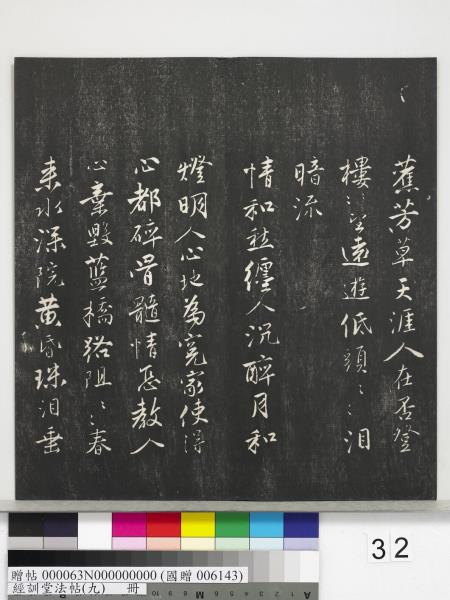 蕉芳草天涯人在否登
樓〻望遠遊低頭〻〻泪
暗流
情和愁纏人沉醉月和
燈明人心地為冤家使得
心都碎骨髓情忍教人
心棄毀藍橋路阻〻〻春
来水深院黄昏珠泪垂
32
贈帖 000063N000000000 (國贈 006143)
經訓堂法帖(九) 冊